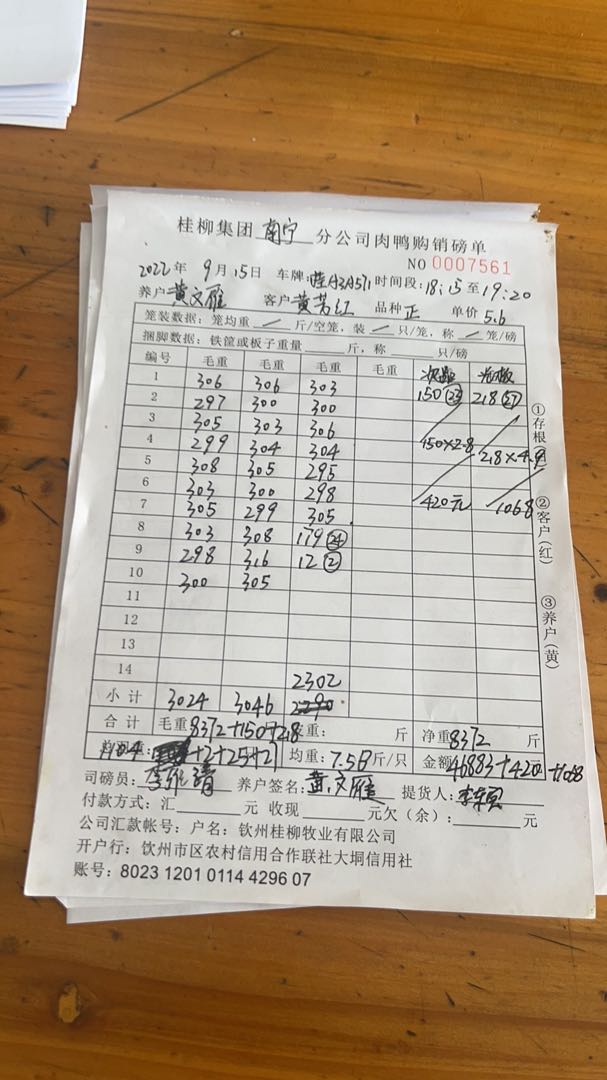 桂柳集团 南宁 分公司肉鸭购销磅单
NO 0007561
2022年 9月15日 车牌: 时间段: 18:15至19:20
养户 黄文雁 客户 黄芳红 品种 正 单价 5.6
笼装数据: 笼均重 / 斤/空笼, 装 / 只/笼, 称 / 笼/磅
捆脚数据: 铁筐或板子重量 斤, 称 只/磅
编号 毛重 毛重 毛重 毛重
1 306 306 303 150 (25) 218 (27)
2 297 300 300
3 305 303 306 150×2.8
4 299 304 304 218×4.9
5 308 305 295
6 303 300 298 420元 1068
7 305 299 305
8 303 308 179 (24)
9 298 316 12 (2)
10 300 305
11
12
13
14 2302
小计 3024 3046 2290
合计 毛重 8372+150+218 重: 斤 净重 8372 斤
1104 +2+25+27 均重: 7.58 斤/只 金额 46883+420+1068
司磅员: 养户签名: 黄文雁 提货人:
付款方式: 汇 元 收现 元欠(余): 元
公司汇款帐号: 户名: 钦州桂柳牧业有限公司
开户行: 钦州市区农村信用合作联社大垌信用社
账号: 8023 1201 0114 4296 07
①存根( ) ②客户(红) ③养户(黄)